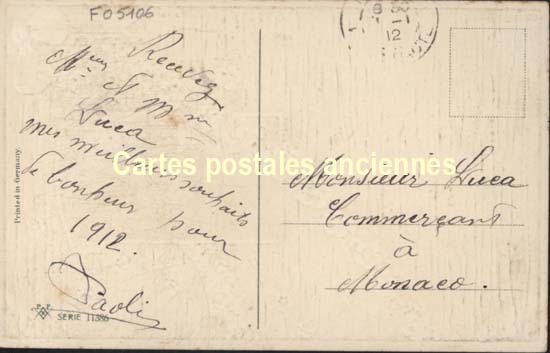 FO 5106
Recevez
Mr et Mme
Luca
mes meilleurs souhaits
de bonheur pour
1912.
Paoli
Printed in Germany.
SERIE 11386
Cartes postales anciennes
12
Monsieur Luca
Commerçant
à
Monaco.